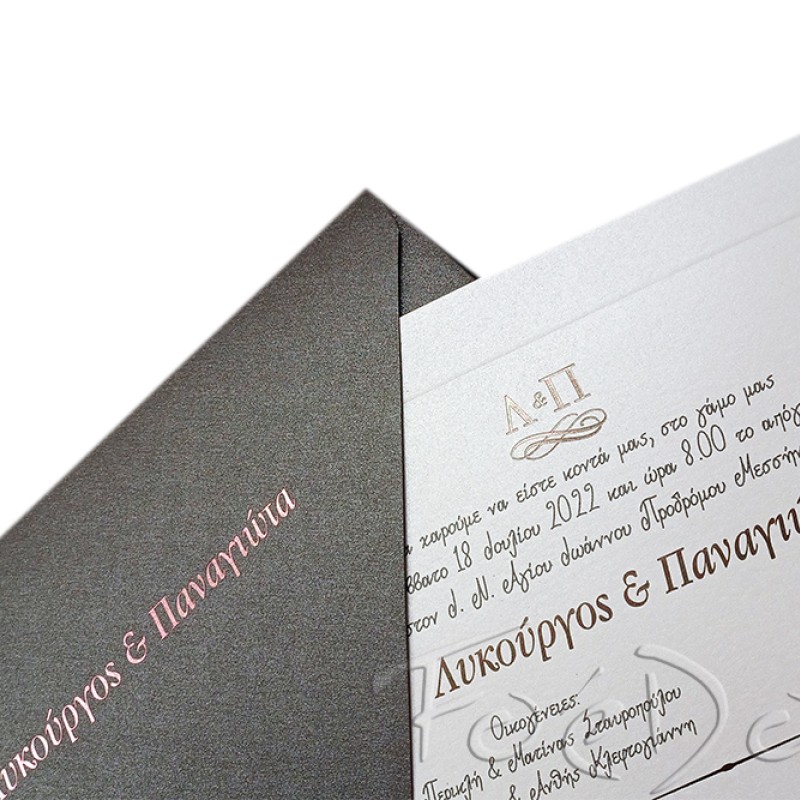 Λυκούργος & Παναγιώτα
Λ&Π
χαρούμε να είστε κοντά μας, στο γάμο μας
18 Ιουλίου 2022 και ώρα 8.00 το
στον Ι. Ν. Αγίου Ιωάννου Προδρόμου
Λυκούργος &
Οικογένειες:
Περικλή & Ματίνας Σταυροπούλου
& Ανθής Κλεφτογιάννη